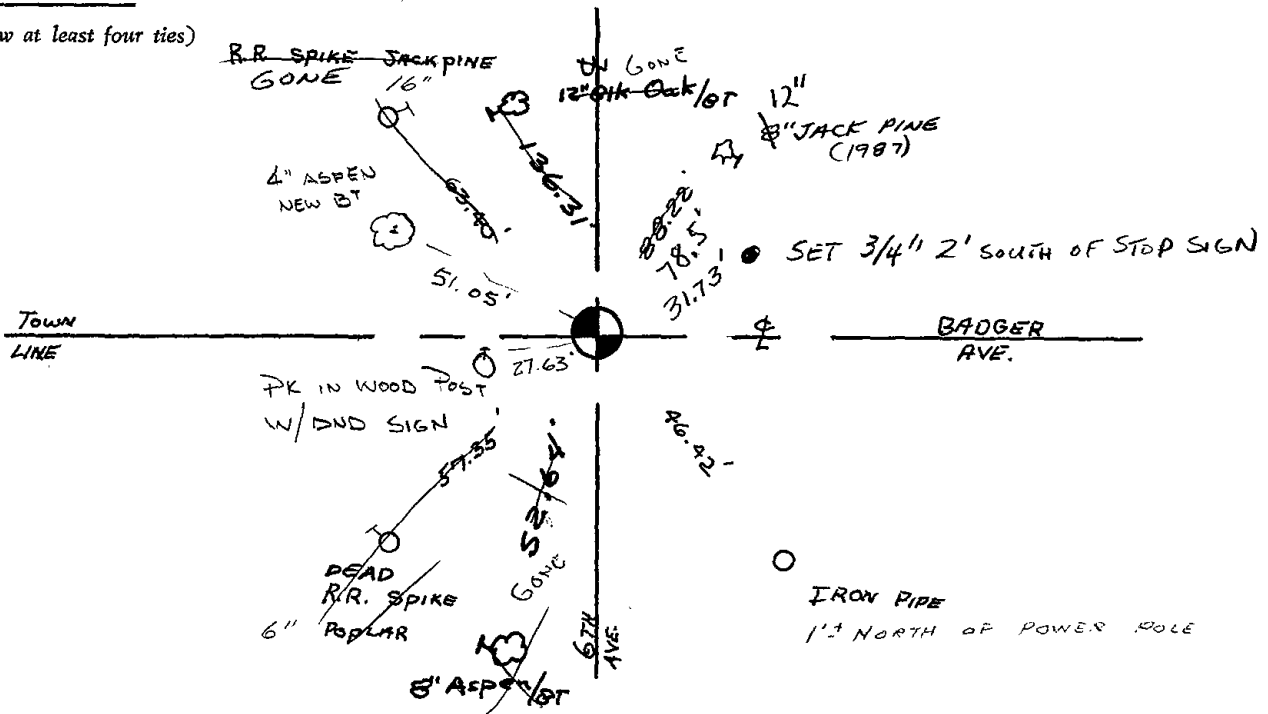 w at least four ties)
R.R. SPIKE JACKPINE
GONE
16"
GONE
12" Blk Oak/BT
12"
8" JACK PINE
(1987)
4" ASPEN
NEW BT
63.40'
136.31'
88.22'
78.5'
31.73'
SET 3/4" 2' SOUTH OF STOP SIGN
51.05'
TOWN
LINE
BADGER
AVE.
27.63'
PK IN WOOD POST
W/DND SIGN
57.35'
52.64'
46.42'
GONE
DEAD
R.R. SPIKE
6" POPLAR
8" Aspen/BT
6TH
AVE.
IRON PIPE
1'± NORTH OF POWER POLE